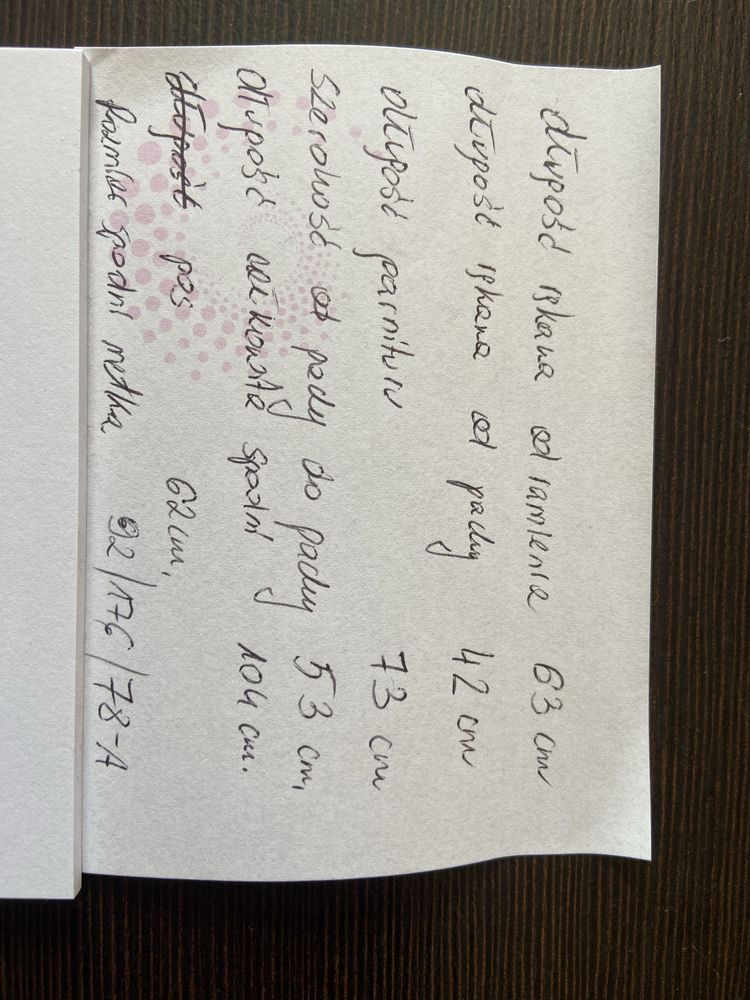 długość rękawa od ramienia 63 cm
długość rękawa od pachy 42 cm
długość garnituru 73 cm
szerokość od pachy do pachy 53 cm,
długość spodni 104 cm.
długość pas 62 cm,
Rozmiar spodni metka 92/176/78-A